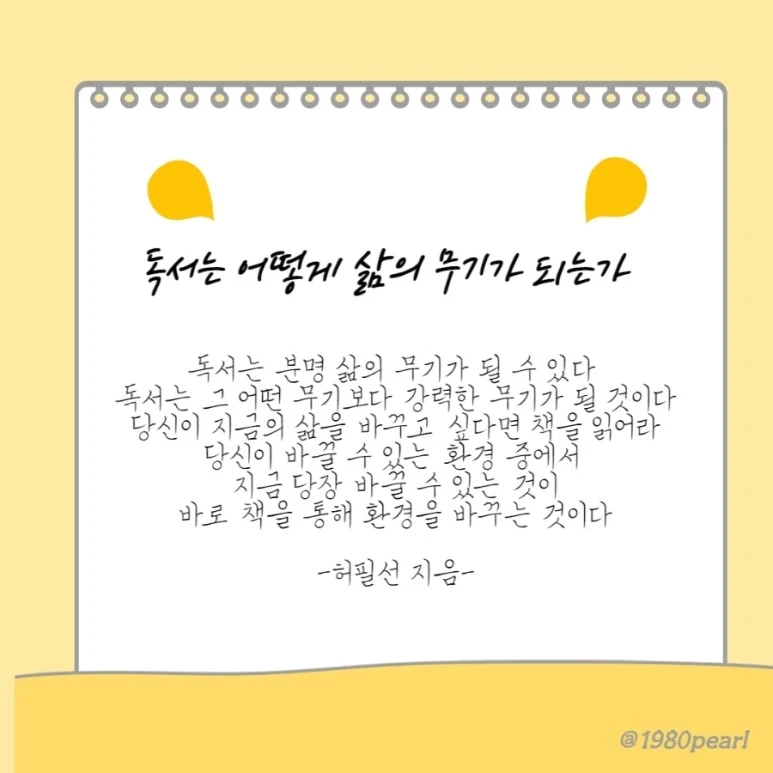 독서는 어떻게 삶의 무기가 되는가
독서는 분명 삶의 무기가 될 수 있다
독서는 그 어떤 무기보다 강력한 무기가 될 것이다
당신이 지금의 삶을 바꾸고 싶다면 책을 읽어라
당신이 바꿀 수 있는 환경 중에서
지금 당장 바꿀 수 있는 것이
바로 책을 통해 환경을 바꾸는 것이다
-허필선 지음-
@1980pearl